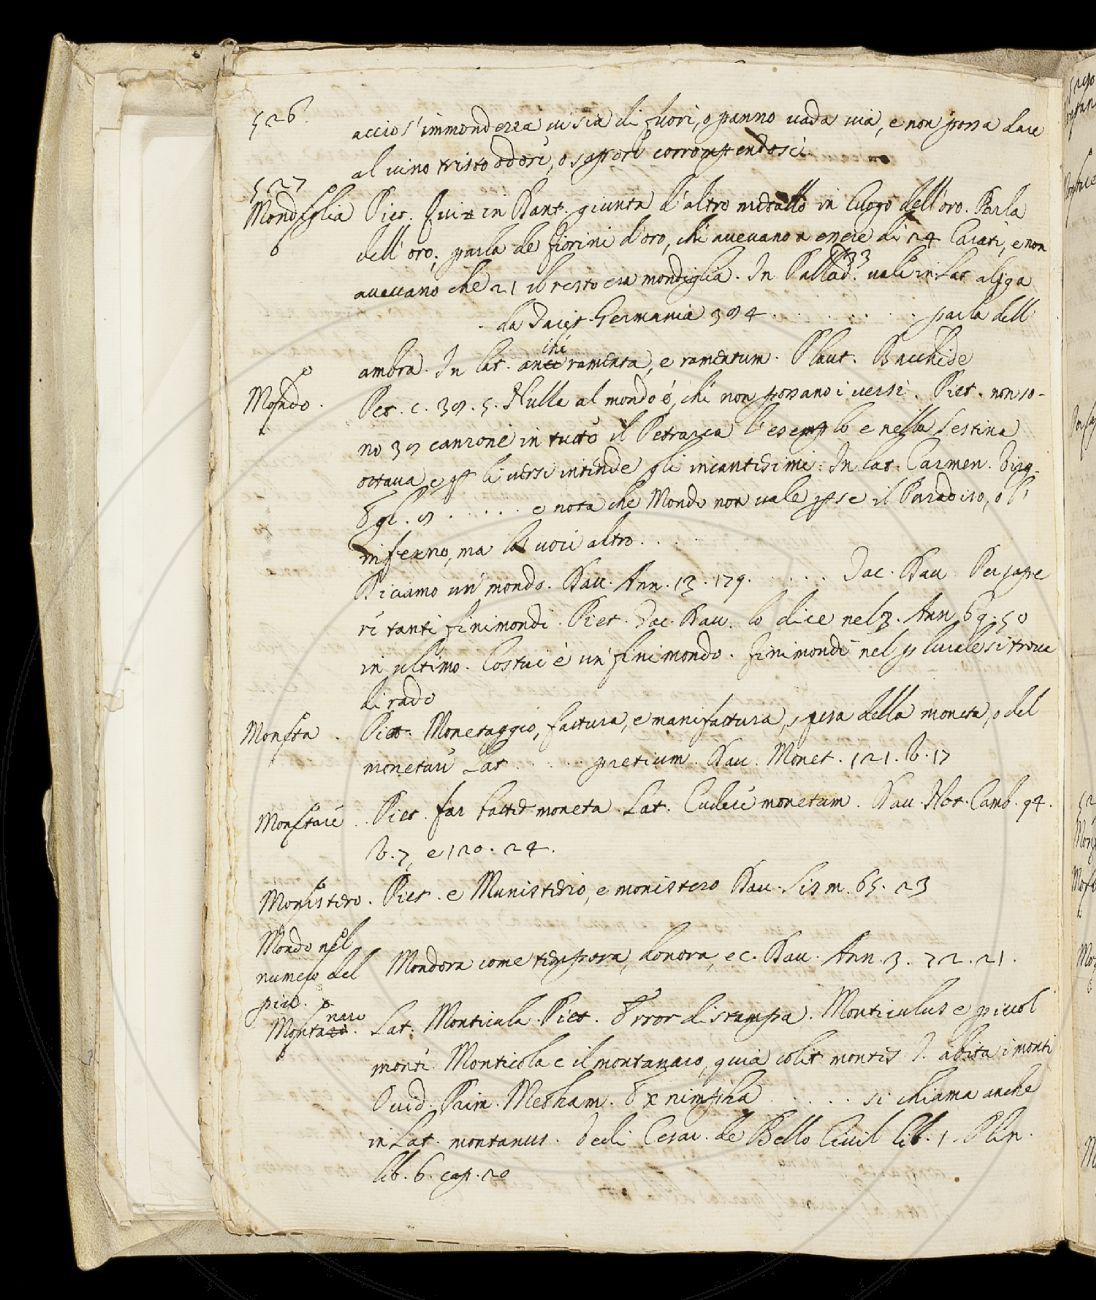 526
acciò s'immondezza vi sia di fuori, o panno vada via, e non possa dare
al vino tristo odore, o sapore corrompendosi
527
Mondiglia Pier. qui in Dant. giunta d'altro metallo in luogo dell'oro. Parla
dell'oro; parla de fiorini d'oro, che avevano a essere di 24 Carati, e non
avevano che 21 il resto era mondiglia. In Pallad. vale in Lat.
da Germania parla dell
ambra. In Lat. ramenta, e ramentum. Plaut. Bacchide
Mondo. Pet. c. 39. 5. Nulla al mondo è, che non possano i versi. Piet. non so-
no 39 canzone in tutto il Petrarca l'esemplo e nella Sestina
octava e li versi intende gli incantesimi: In Lat. Carmen. Virg.
Egl. . . . . . e nota che Mondo non vale se il Paradiso, o l'
inferno, ma voci altro. . . .
Diciamo un mondo. Dav. Ann. 13. 179. . . . . Dav. Per sape
re tanti finimondi. Piet. Dav. lo dice nel 3. Ann. 69. 50
in ultimo. Costui è un finimondo. finimondi nel plurale si trova
di rado
Moneta. Monetaggio, fattura, e manifattura, spesa della moneta, o del
monetare Lat. . . . . pretium. Dav. Monet. 121. b. 17
Monetare. Pier. far moneta. Lat. Cudere monetam. Dav. Not. Camb. 94.
b. 7, e 120. 24.
Monistero. Pier. e Munisterio, e monistero Dav. Sism. 65. 23
Mondo nel
numero del
più. Mondora come tempora, honora, ec. Dav. Ann. 3. 72. 21.
Montanaro. Lat. Monticula. Piet. Error di stampa. Monticulus e piccol
monte. Monticola e il montanaro, quia colit montes. abita i monti
Ovid. Prim. Metham. nimpha . . . . . si chiama anche
in Lat. montanus. Cesar. de Bello Civil lib. 1. Plin.
lib. 6. cap. 20